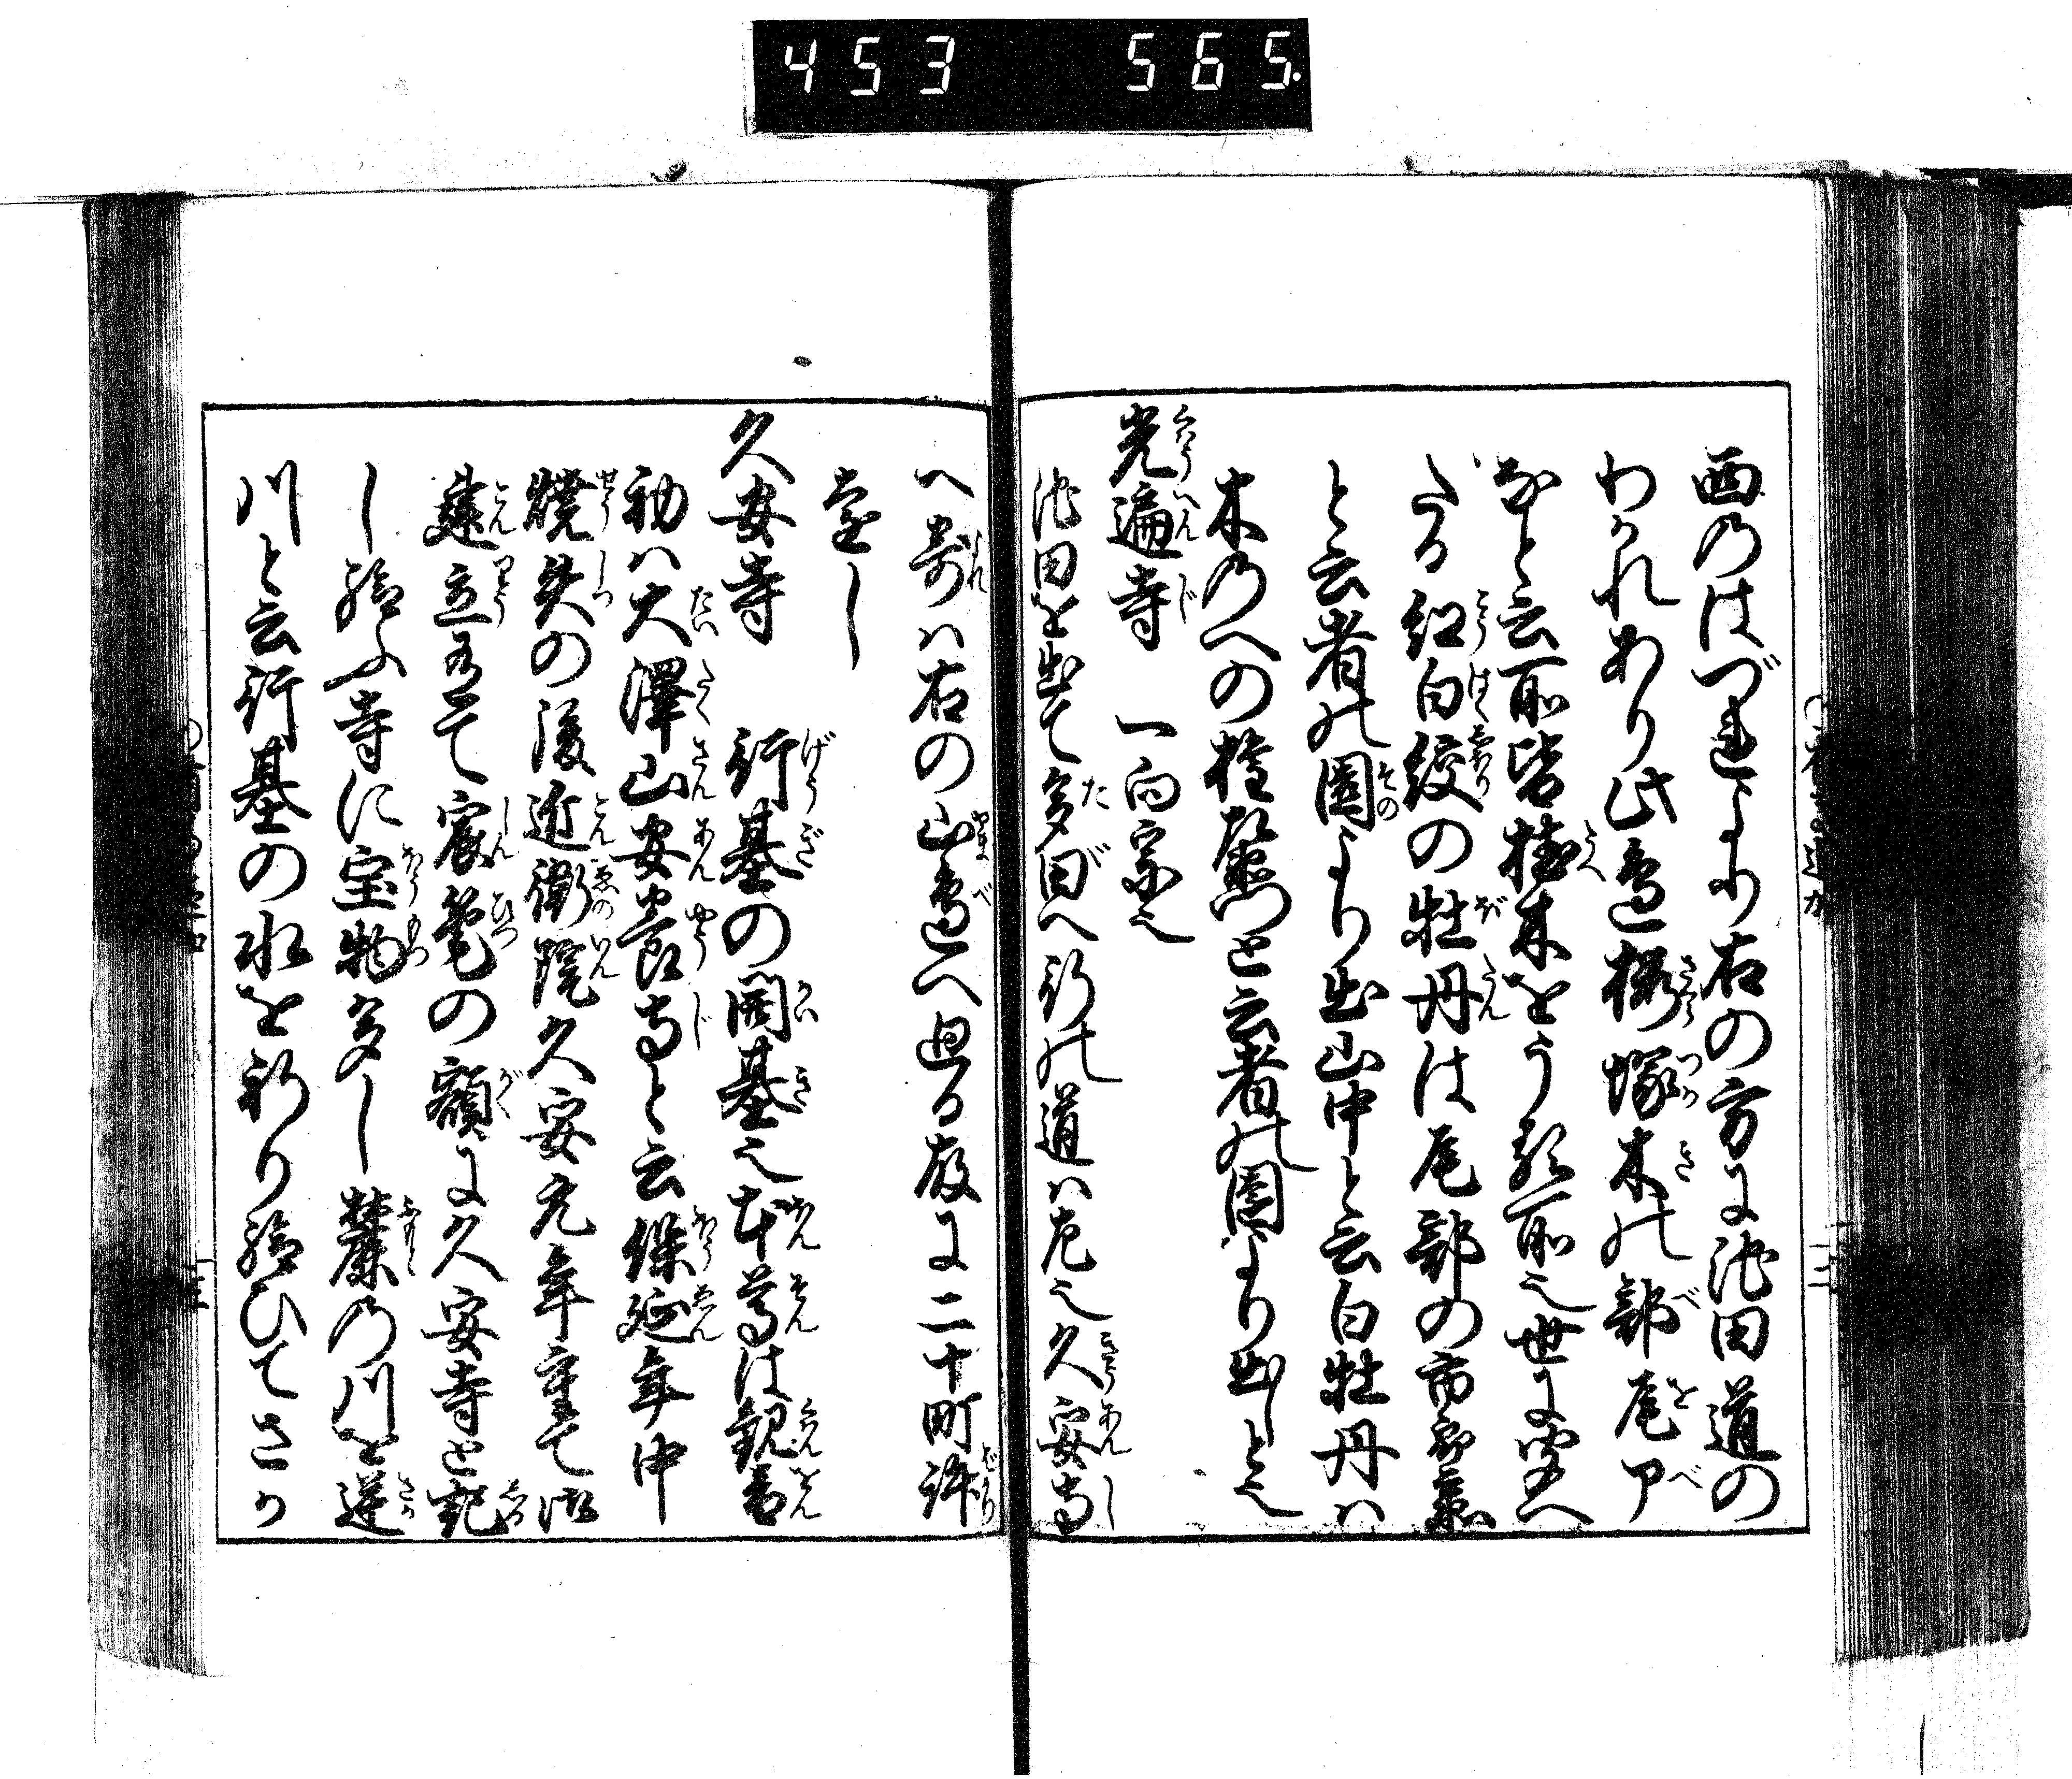 453 565.
西乃はづれより右の方に池田道の
わかれあり此邊桜塚木の部尾ア
など云所皆植木をうる所也世に聞へ
たる紅白絞の牡丹は尾部の市郎兵衛
と云者の園より出山中と云白牡丹ハ
木のへの権兵衛と云者の園より出しと也
光遍寺 一向宗也
池田を出て多田へ行の道ハ左也久安寺
へ寄れハ右の山邊へ廻る故に二十町許
遠し
久安寺 行基の開基也本尊は観音
初ハ大澤山安養寺と云保延年中
焼失の後近衛院久安元年重て御
建立有て宸筆の額に久安寺と記
し給ふ寺に宝物多し麓の川を逆
川と云行基の水を祈り給ひてさか